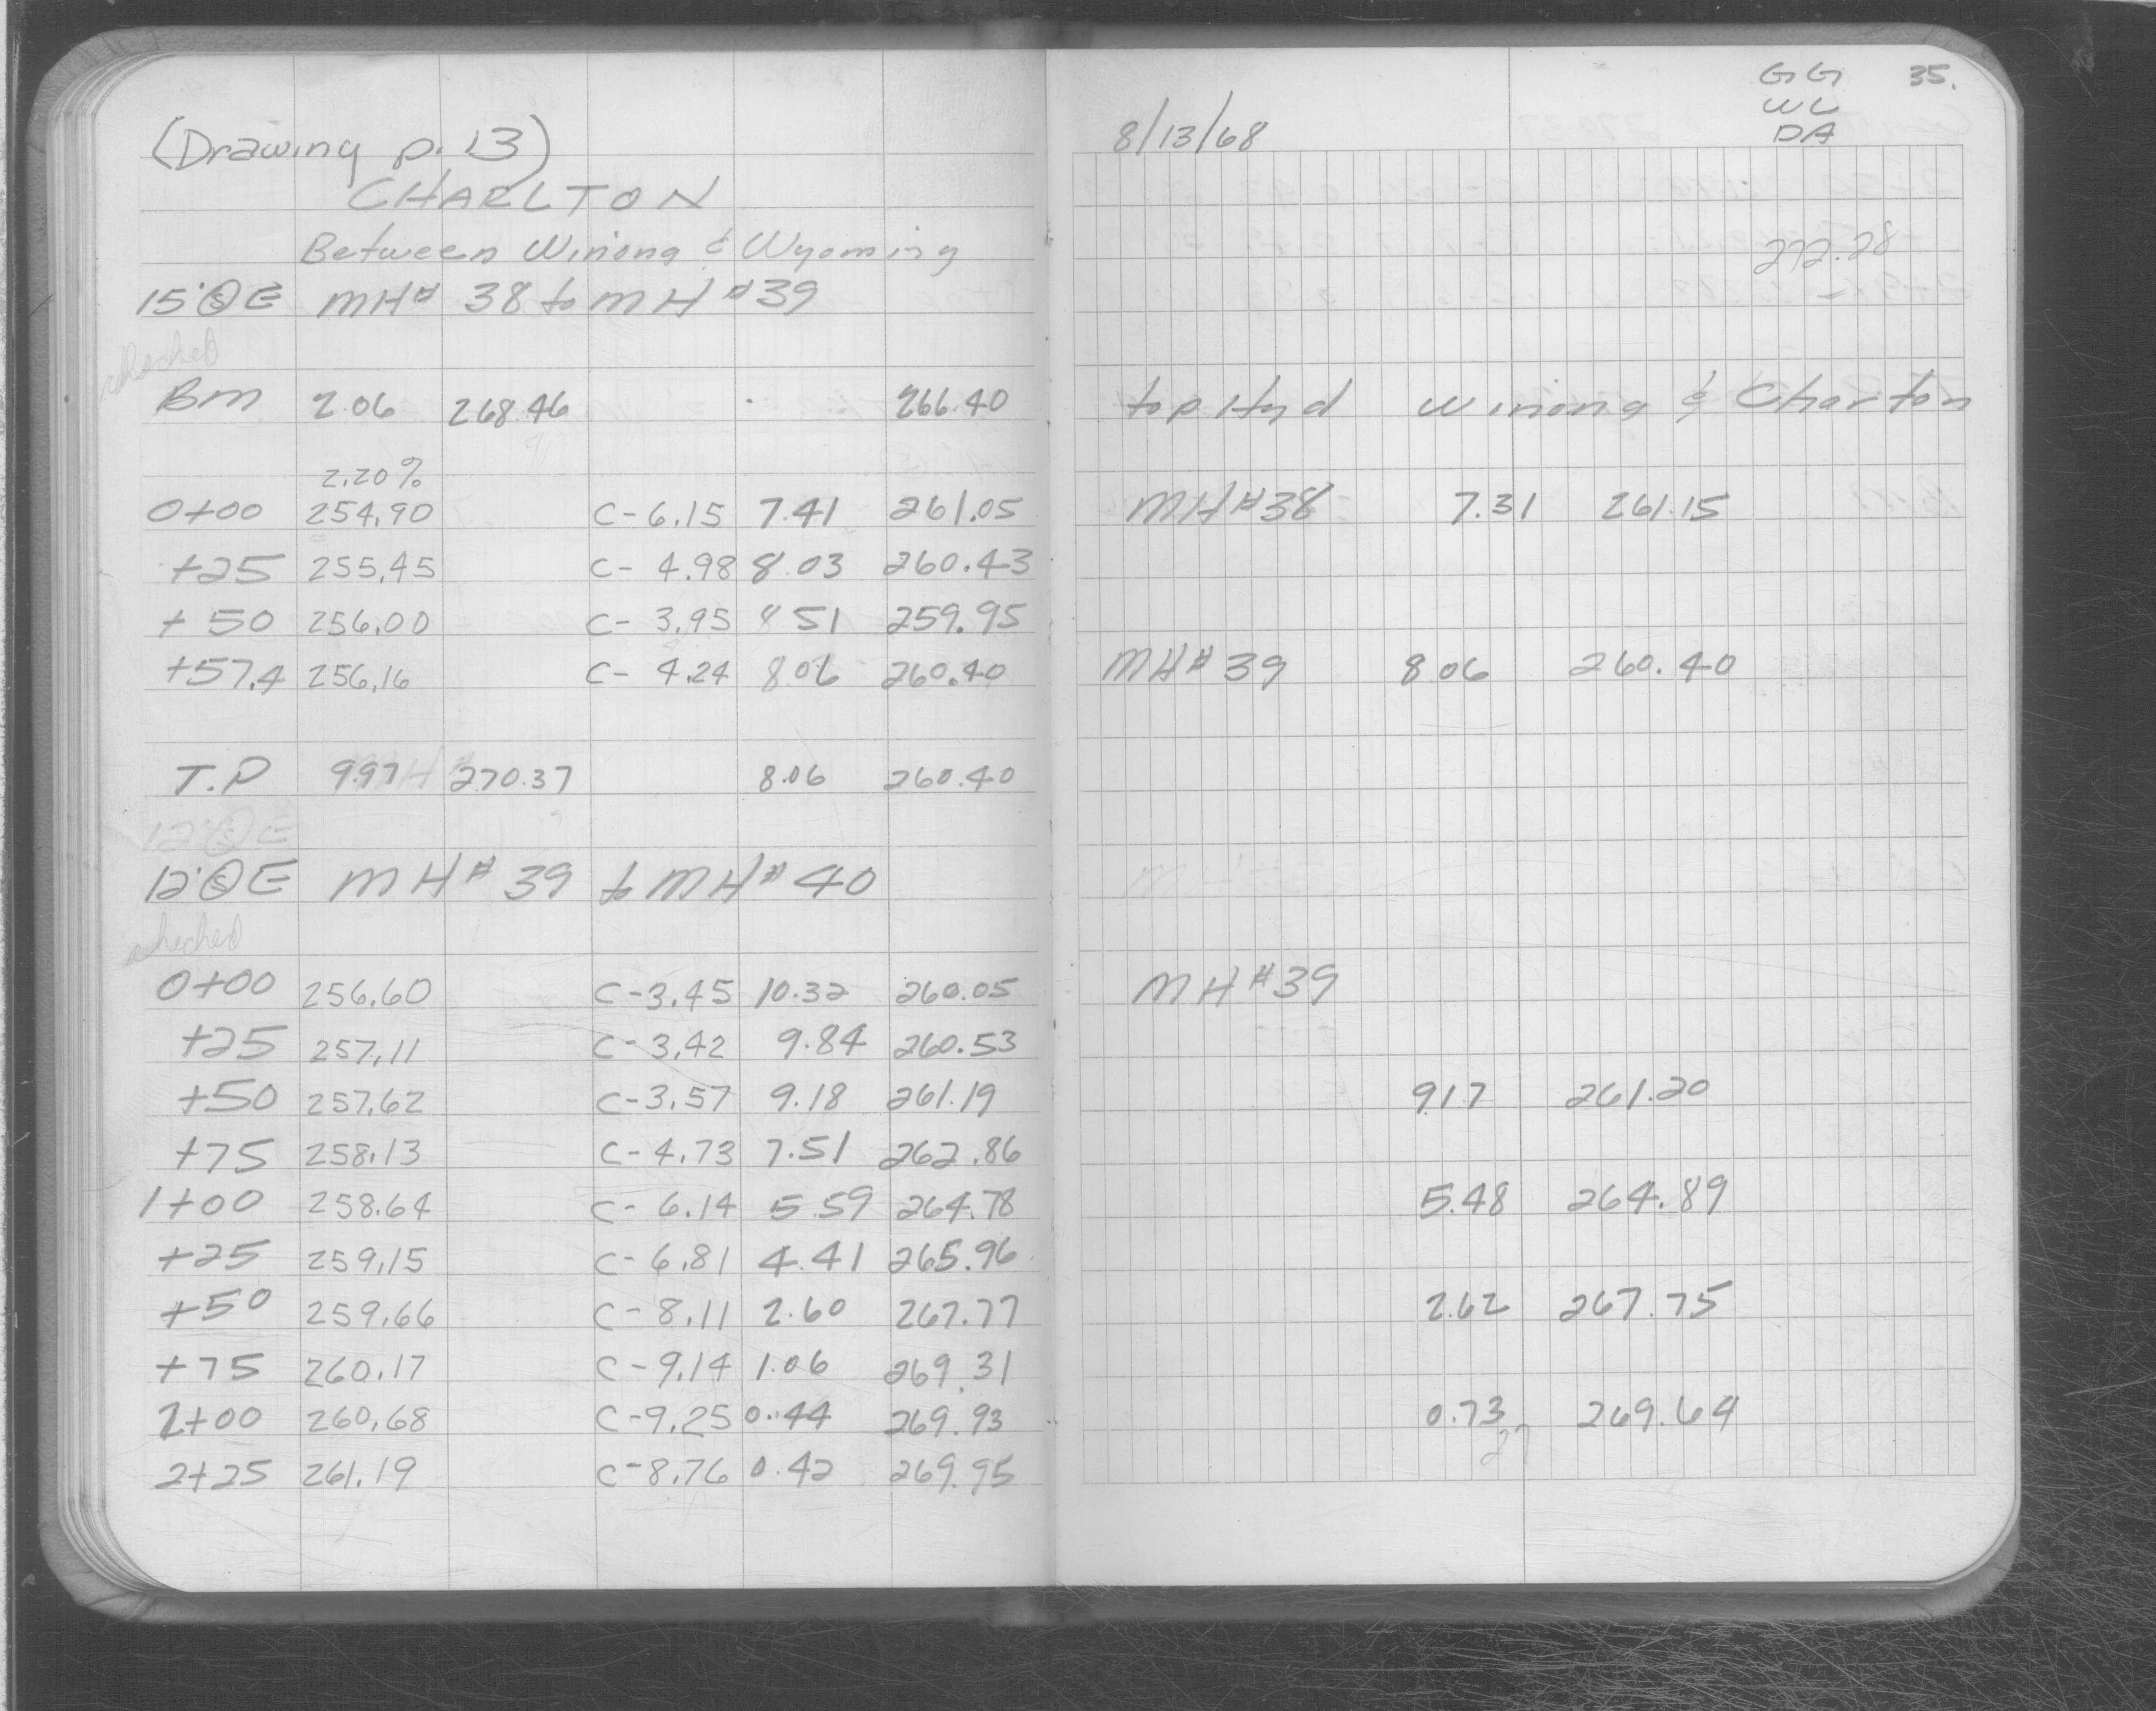 (Drawing p. 13)
CHARLTON
Between Winong & Wyoming
15' Ⓢ E MH# 38 to MH #39
checked
BM 2.06 268.46 266.40
2.20%
0+00 254.90 C-6.15 7.41 261.05
+25 255.45 C- 4.98 8.03 260.43
+50 256.00 C- 3.95 8 51 259.95
+57.4 256.16 C- 4.24 8.06 260.40
T.P 9.97 270.37 8.06 260.40
12' Ⓢ E
12' Ⓢ E MH# 39 to MH# 40
checked
0+00 256.60 C-3.45 10.32 260.05
+25 257.11 C-3.42 9.84 260.53
+50 257.62 C-3.57 9.18 261.19
+75 258.13 C-4.73 7.51 262.86
1+00 258.64 C- 6.14 5.59 264.78
+25 259.15 C- 6.81 4.41 265.96
+50 259.66 C-8.11 2.60 267.77
+75 260.17 C-9.14 1.06 269.31
2+00 260.68 C-9.25 0.44 269.93
2+25 261.19 C-8.76 0.42 269.95
GG 35.
WL
8/13/68 DA
272.28
top Hyd Winong & Charton
MH#38 7.31 261.15
MH# 39 8.06 260.40
MH#39
9.17 261.20
5.48 264.89
2.62 267.75
0.73 269.64
27